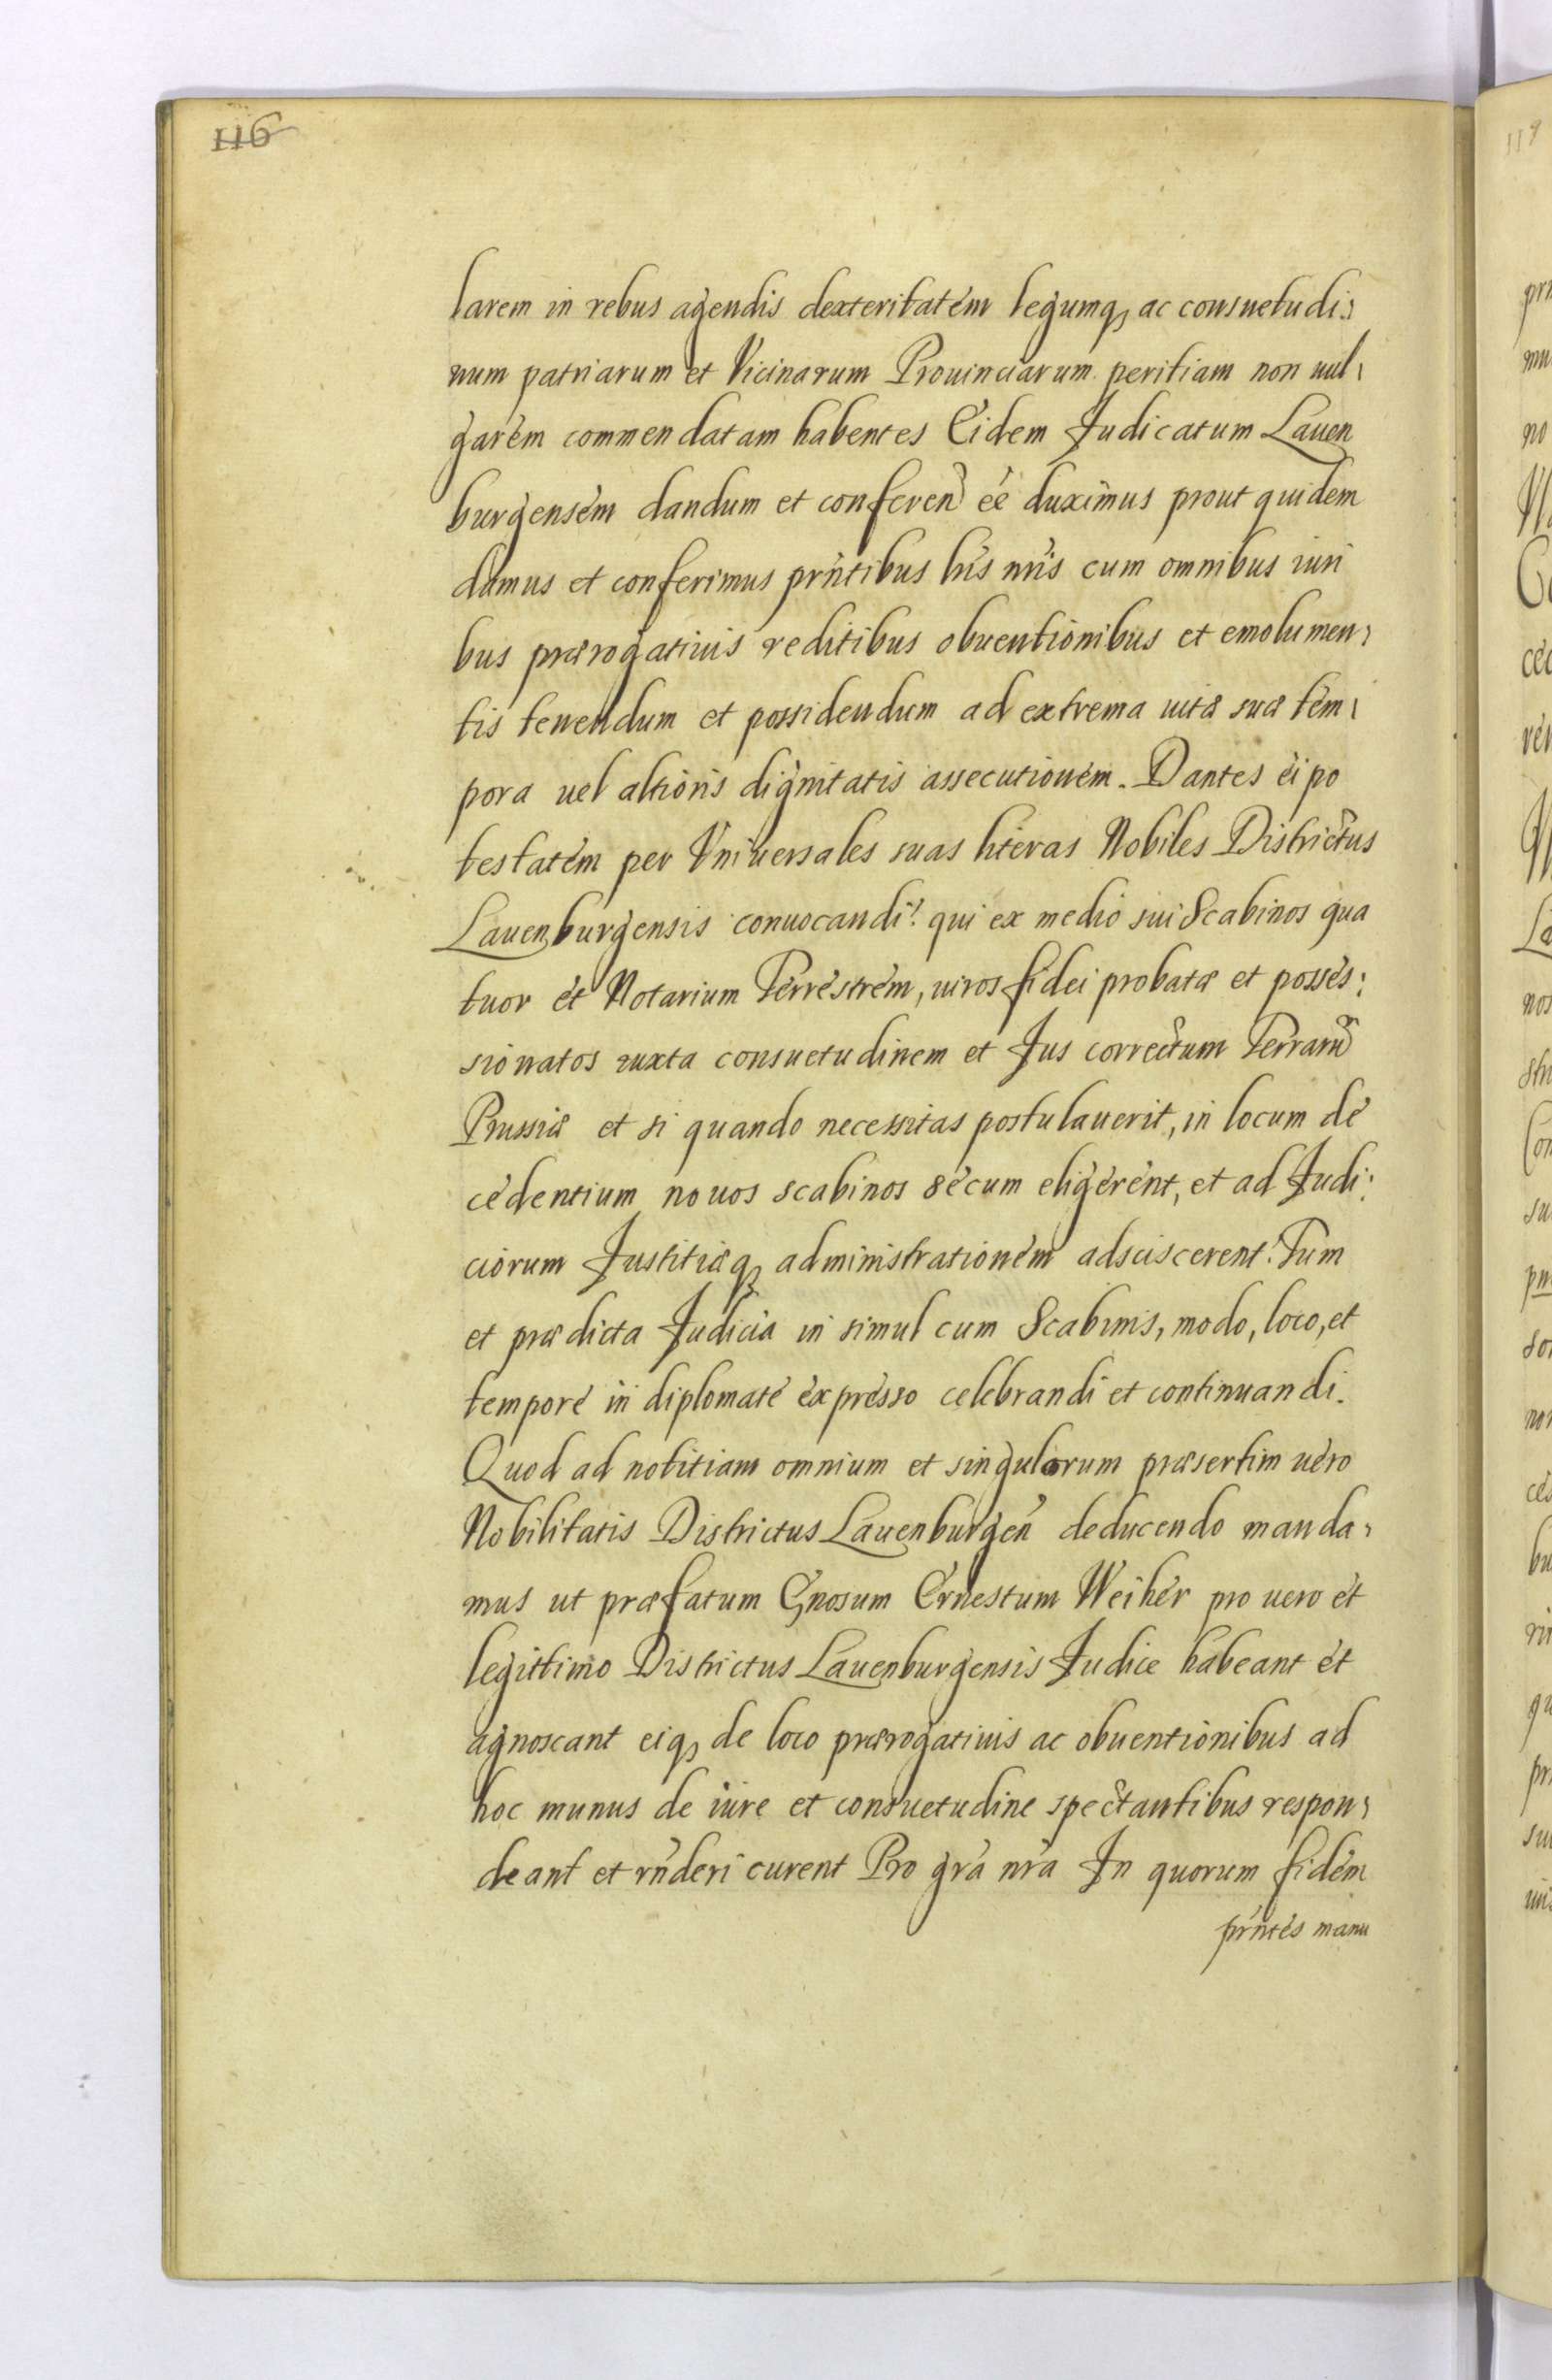 116
larem in rebus agendis dexteritatem legumq; ac consuetudi:
num patriarum et Vicinarum Prouinciarum peritiam non uul:
garem commendatam habentes Eidem Judicatum Lauen
burgensem dandum et conferen̄ eé duximus prout quidem
damus et conferimus prn̄tibus hís nrīs cum omnibus iuri
bus prærogatiuis reditibus obuentionibus et emolumen:
tis tenendum et possidendum ad extrema uitæ suæ tem:
pora uel altioris dignitatis assecutionem. Dantes ei po
testatem per Vniuersales suas literas Nobiles Districtus
Lauenburgensis conuocandi: qui ex medio sui Scabinos qua
tuor et Notarium Terrestrem, uiros fidei probatæ et posses:
sionatos iuxta consuetudinem et Jus correctum Terrarū
Prussiæ et si quando necessitas postulauerit, in locum de
cedentium nouos scabinos secum eligerent, et ad Judi:
ciorum Justitiæq; administrationem adsciscerent: Tum
et prædicta Judicia in simul cum Scabinis, modo, loco, et
tempore in diplomate expresso celebrandi et continuandi.
Quod ad notitiam omnium et singulorum præsertim uero
Nobilitatis Districtus Lauenburgen̄ deducendo manda:
mus ut præfatum Gnosum Ernestum Weiher pro uero et
legittimo Districtus Lauenburgensis Judice habeant et
agnoscant eiq; de loco prærogatiuis ac obuentionibus ad
hoc munus de iure et consuetudine spectantibus respon:
deant et rn̄deri curent Pro grā nrā In quorum fidem
prn̄tes manu